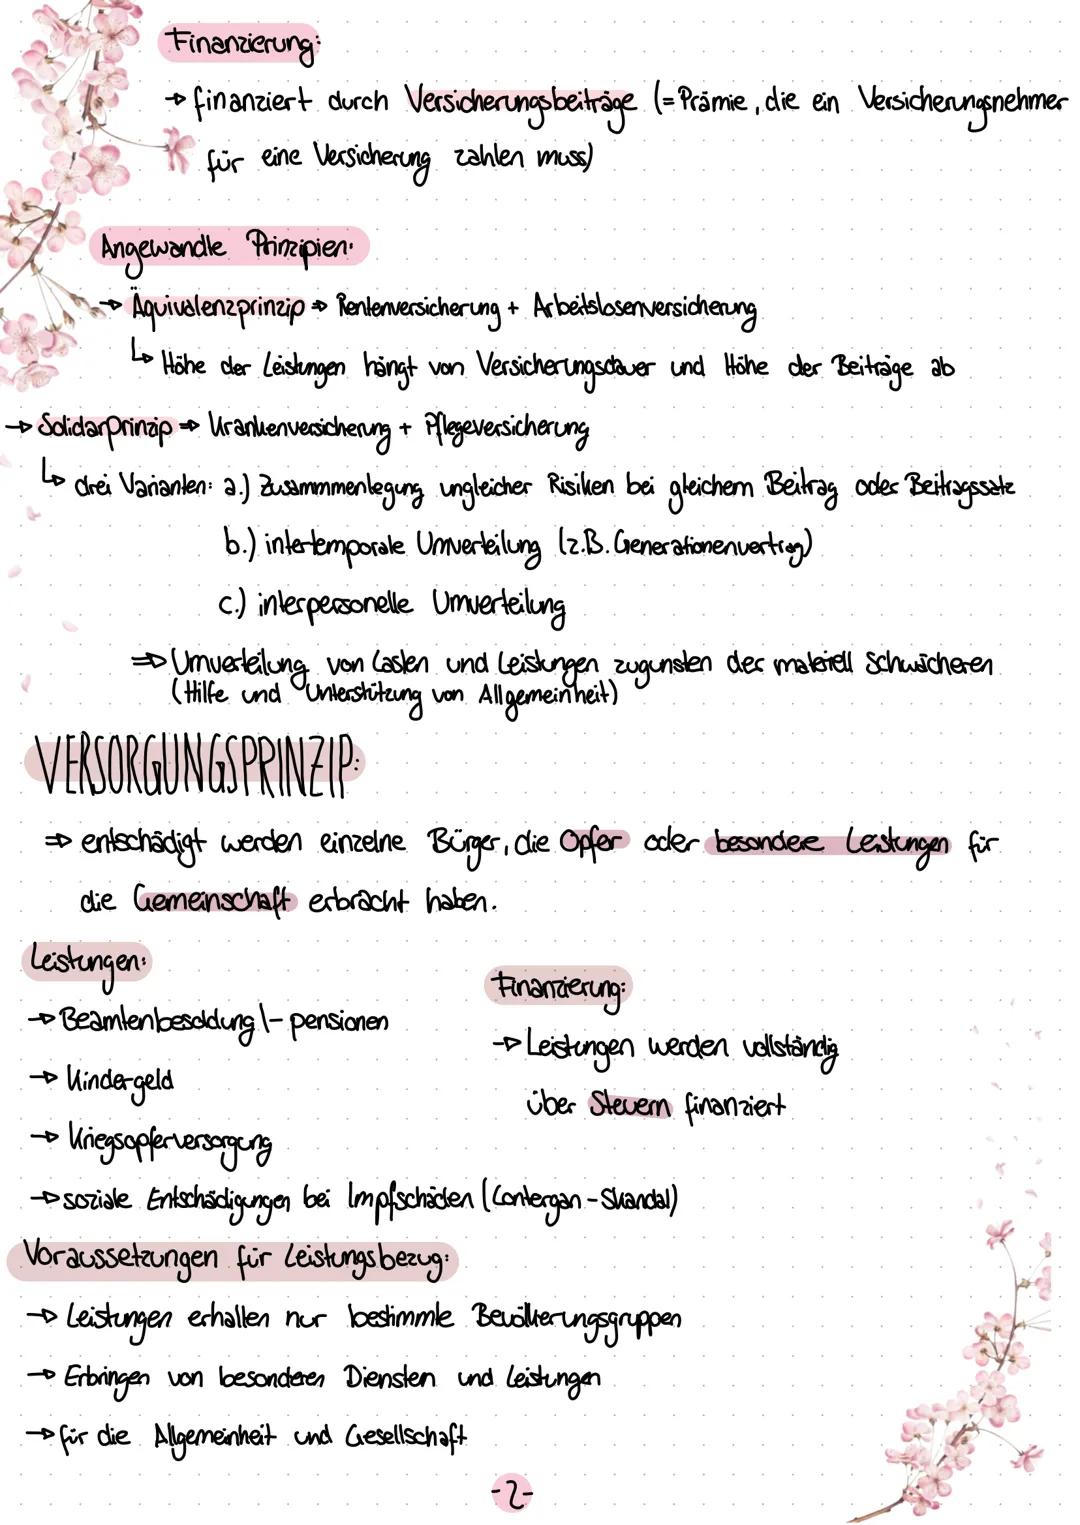 Finanzierung:
→ finanziert durch Versicherungsbeiträge (= Prämie, die ein Versicherungsnehmer
für eine Versicherung zahlen muss)
Angewandte Prinzipien:
→ Äquivalenzprinzip ⇒ Rentenversicherung + Arbeitslosenversicherung
↳ Höhe der Leistungen hängt von Versicherungsdauer und Höhe der Beiträge ab
→ Solidarprinzip ⇒ Krankenversicherung + Pflegeversicherung
↳ drei Varianten: a.) Zusammmenlegung ungleicher Risiken bei gleichem Beitrag oder Beitragssatz
b.) intertemporale Umverteilung (z.B. Generationenvertrag)
c.) interpersonelle Umverteilung
⇒ Umverteilung von Lasten und Leistungen zugunsten der materiell Schwächeren
(Hilfe und Unterstützung von Allgemeinheit)
VERSORGUNGSPRINZIP:
⇒ entschädigt werden einzelne Bürger, die Opfer oder besondere Leistungen für
die Gemeinschaft erbracht haben.
Leistungen:
→ Beamtenbesoldung \- pensionen
→ Kindergeld
→ Kriegsopferversorgung
→ soziale Entschädigungen bei Impfschäden (Contergan - Skandal)
Finanzierung:
→ Leistungen werden vollständig
über Steuern finanziert
Voraussetzungen für Leistungsbezug:
→ Leistungen erhalten nur bestimmte Bevölkerungsgruppen
→ Erbringen von besonderen Diensten und Leistungen
→ für die Allgemeinheit und Gesellschaft
-2-